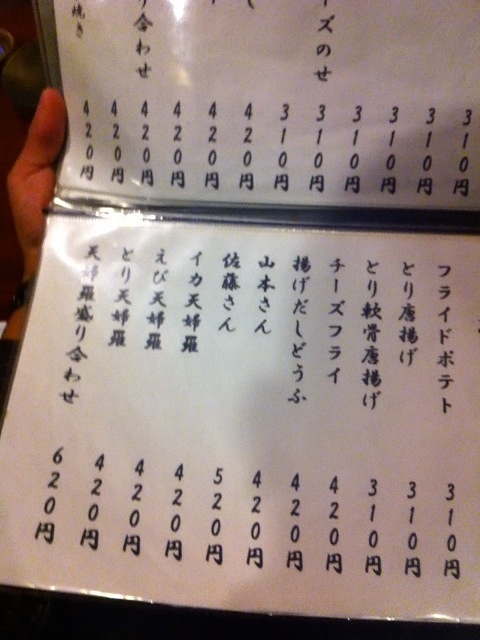 310円
310円
310円
310円
ズのせ 310円
310円
420円
420円
420円
り合わせ 420円
420円
焼き 420円
フライドポテト 310円
とり唐揚げ 310円
とり軟骨唐揚げ 310円
チーズフライ 420円
揚げだしどうふ 420円
山本さん 420円
佐藤さん 520円
イカ天婦羅 420円
えび天婦羅 420円
とり天婦羅 420円
天婦羅盛り合わせ 620円